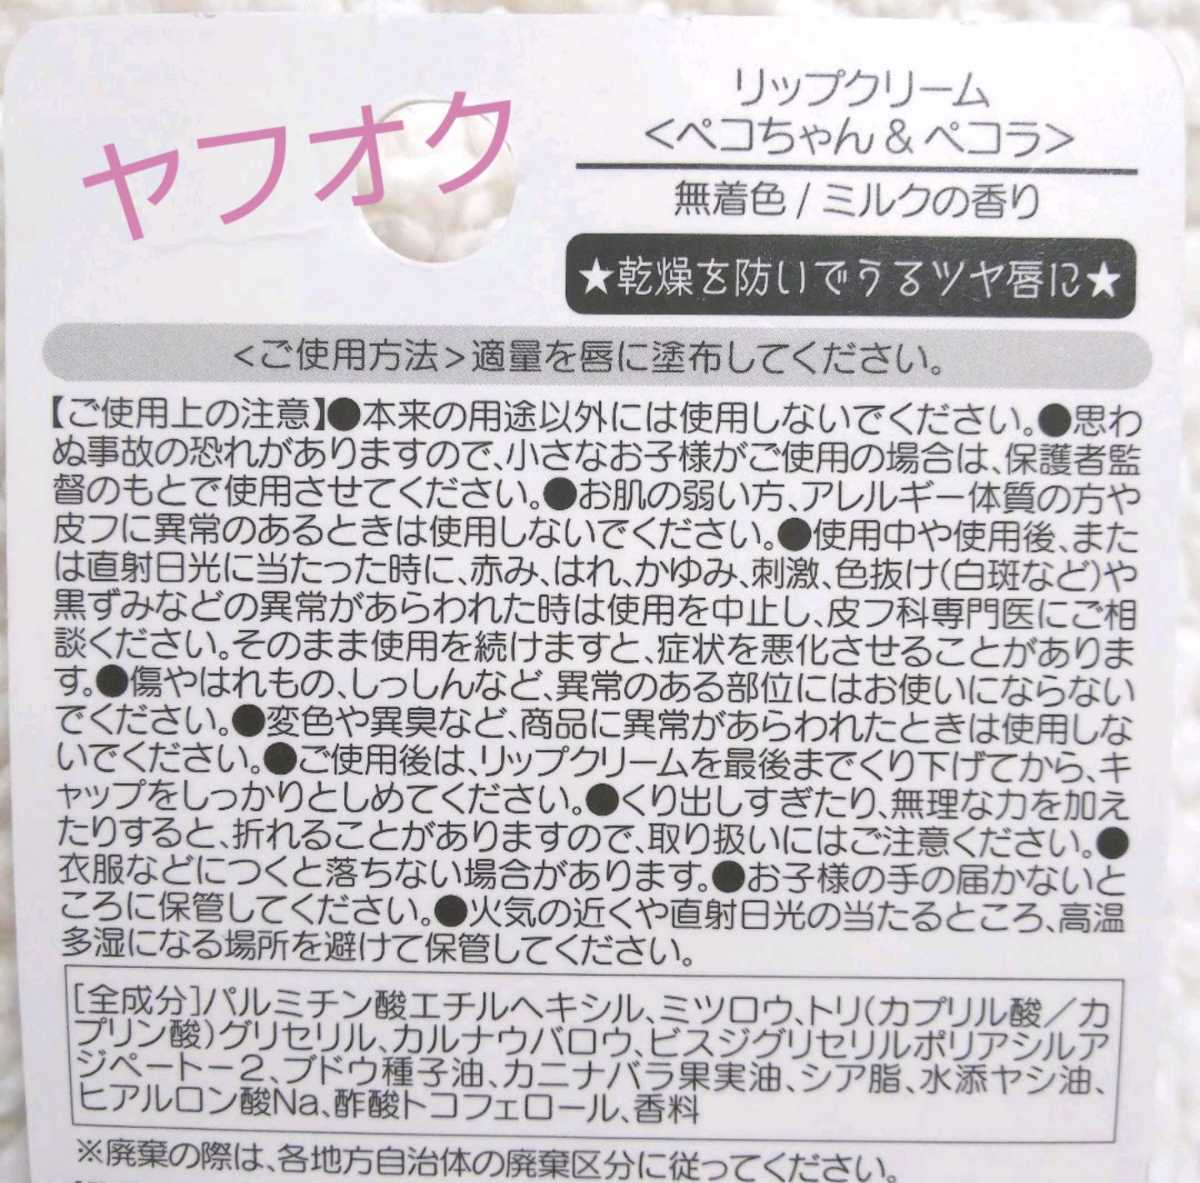 ヤフオク
リップクリーム
<ペコちゃん&ペコラ>
無着色/ミルクの香り
★乾燥を防いでうるツヤ唇に★
<ご使用方法>適量を唇に塗布してください。
【ご使用上の注意】●本来の用途以外には使用しないでください。●思わ
ぬ事故の恐れがありますので、小さなお子様がご使用の場合は、保護者監
督のもとで使用させてください。●お肌の弱い方、アレルギー体質の方や
皮フに異常のあるときは使用しないでください。●使用中や使用後、また
は直射日光に当たった時に、赤み、はれ、かゆみ、刺激、色抜け(白斑など)や
黒ずみなどの異常があらわれた時は使用を中止し、皮フ科専門医にご相
談ください。そのまま使用を続けますと、症状を悪化させることがありま
す。●傷やはれもの、しっしんなど、異常のある部位にはお使いにならない
でください。●変色や異臭など、商品に異常があらわれたときは使用しな
いでください。●ご使用後は、リップクリームを最後までくり下げてから、キ
ャップをしっかりとしめてください。●くり出しすぎたり、無理な力を加え
たりすると、折れることがありますので、取り扱いにはご注意ください。●
衣服などにつくと落ちない場合があります。●お子様の手の届かないと
ころに保管してください。●火気の近くや直射日光の当たるところ、高温
多湿になる場所を避けて保管してください。
[全成分]パルミチン酸エチルヘキシル、ミツロウ、トリ(カプリル酸/カ
プリン酸)グリセリル、カルナウバロウ、ビスジグリセリルポリアシルア
ジペート-2、ブドウ種子油、カニナバラ果実油、シア脂、水添ヤシ油、
ヒアルロン酸Na、酢酸トコフェロール、香料
※廃棄の際は、各地方自治体の廃棄区分に従ってください。